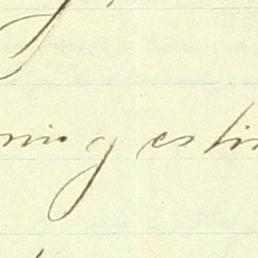 ning esti